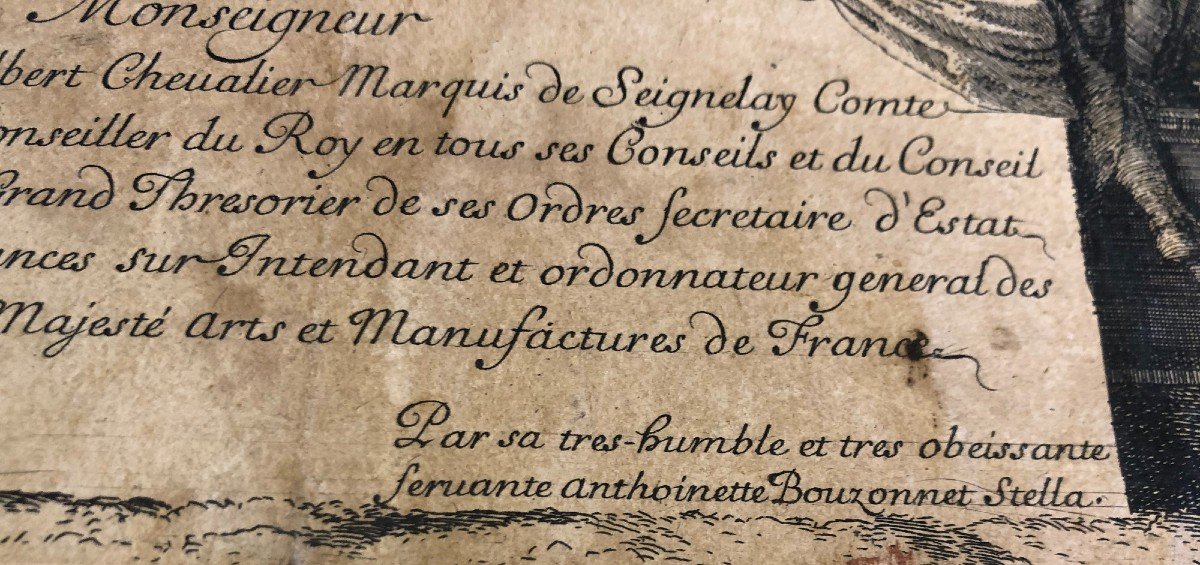 Monseigneur
lbert Cheualier Marquis de Seignelay Comte
onseiller du Roy en tous ses Conseils et du Conseil
Grand Thresorier de ses Ordres secretaire d'Estat
ances sur Intendant et ordonnateur general des
Majesté Arts et Manufactures de France
Par sa tres-humble et tres obeissante
seruante Anthoinette Bouzonnet Stella.